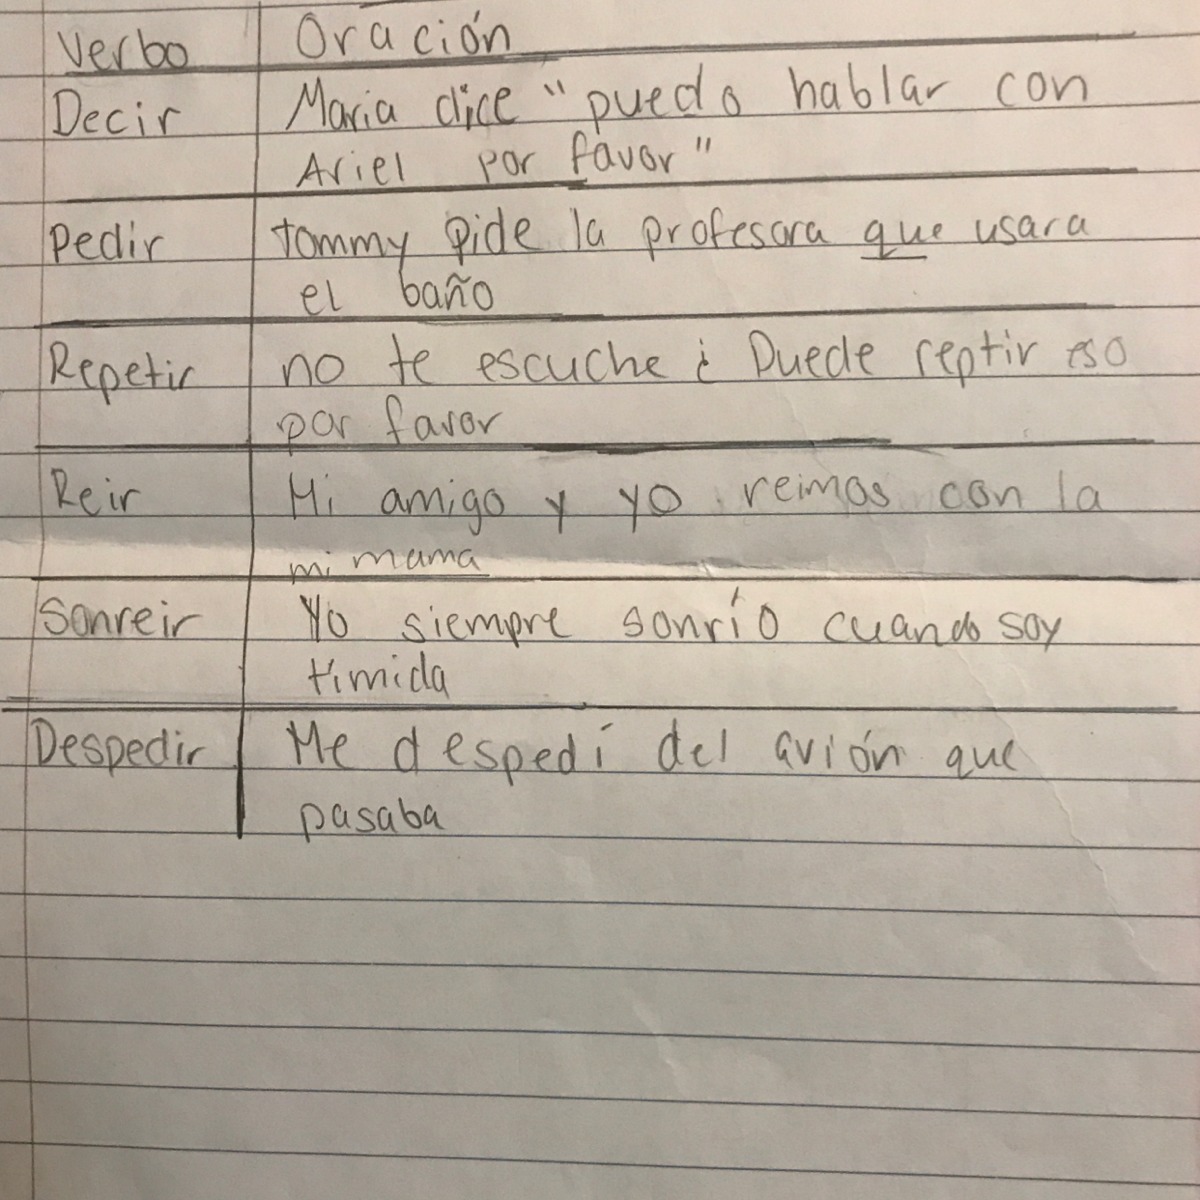 Verbo Oración
Decir Maria dice "puedo hablar con
Ariel por favor"
Pedir tommy pide la profesora que usara
el baño
Repetir no te escuche ¿ Puede reptir eso
por favor
Reir Mi amigo y yo reimos con la
mi mama
Sonreir Yo siempre sonrío cuando soy
timida
Despedir Me despedí del avión que
pasaba